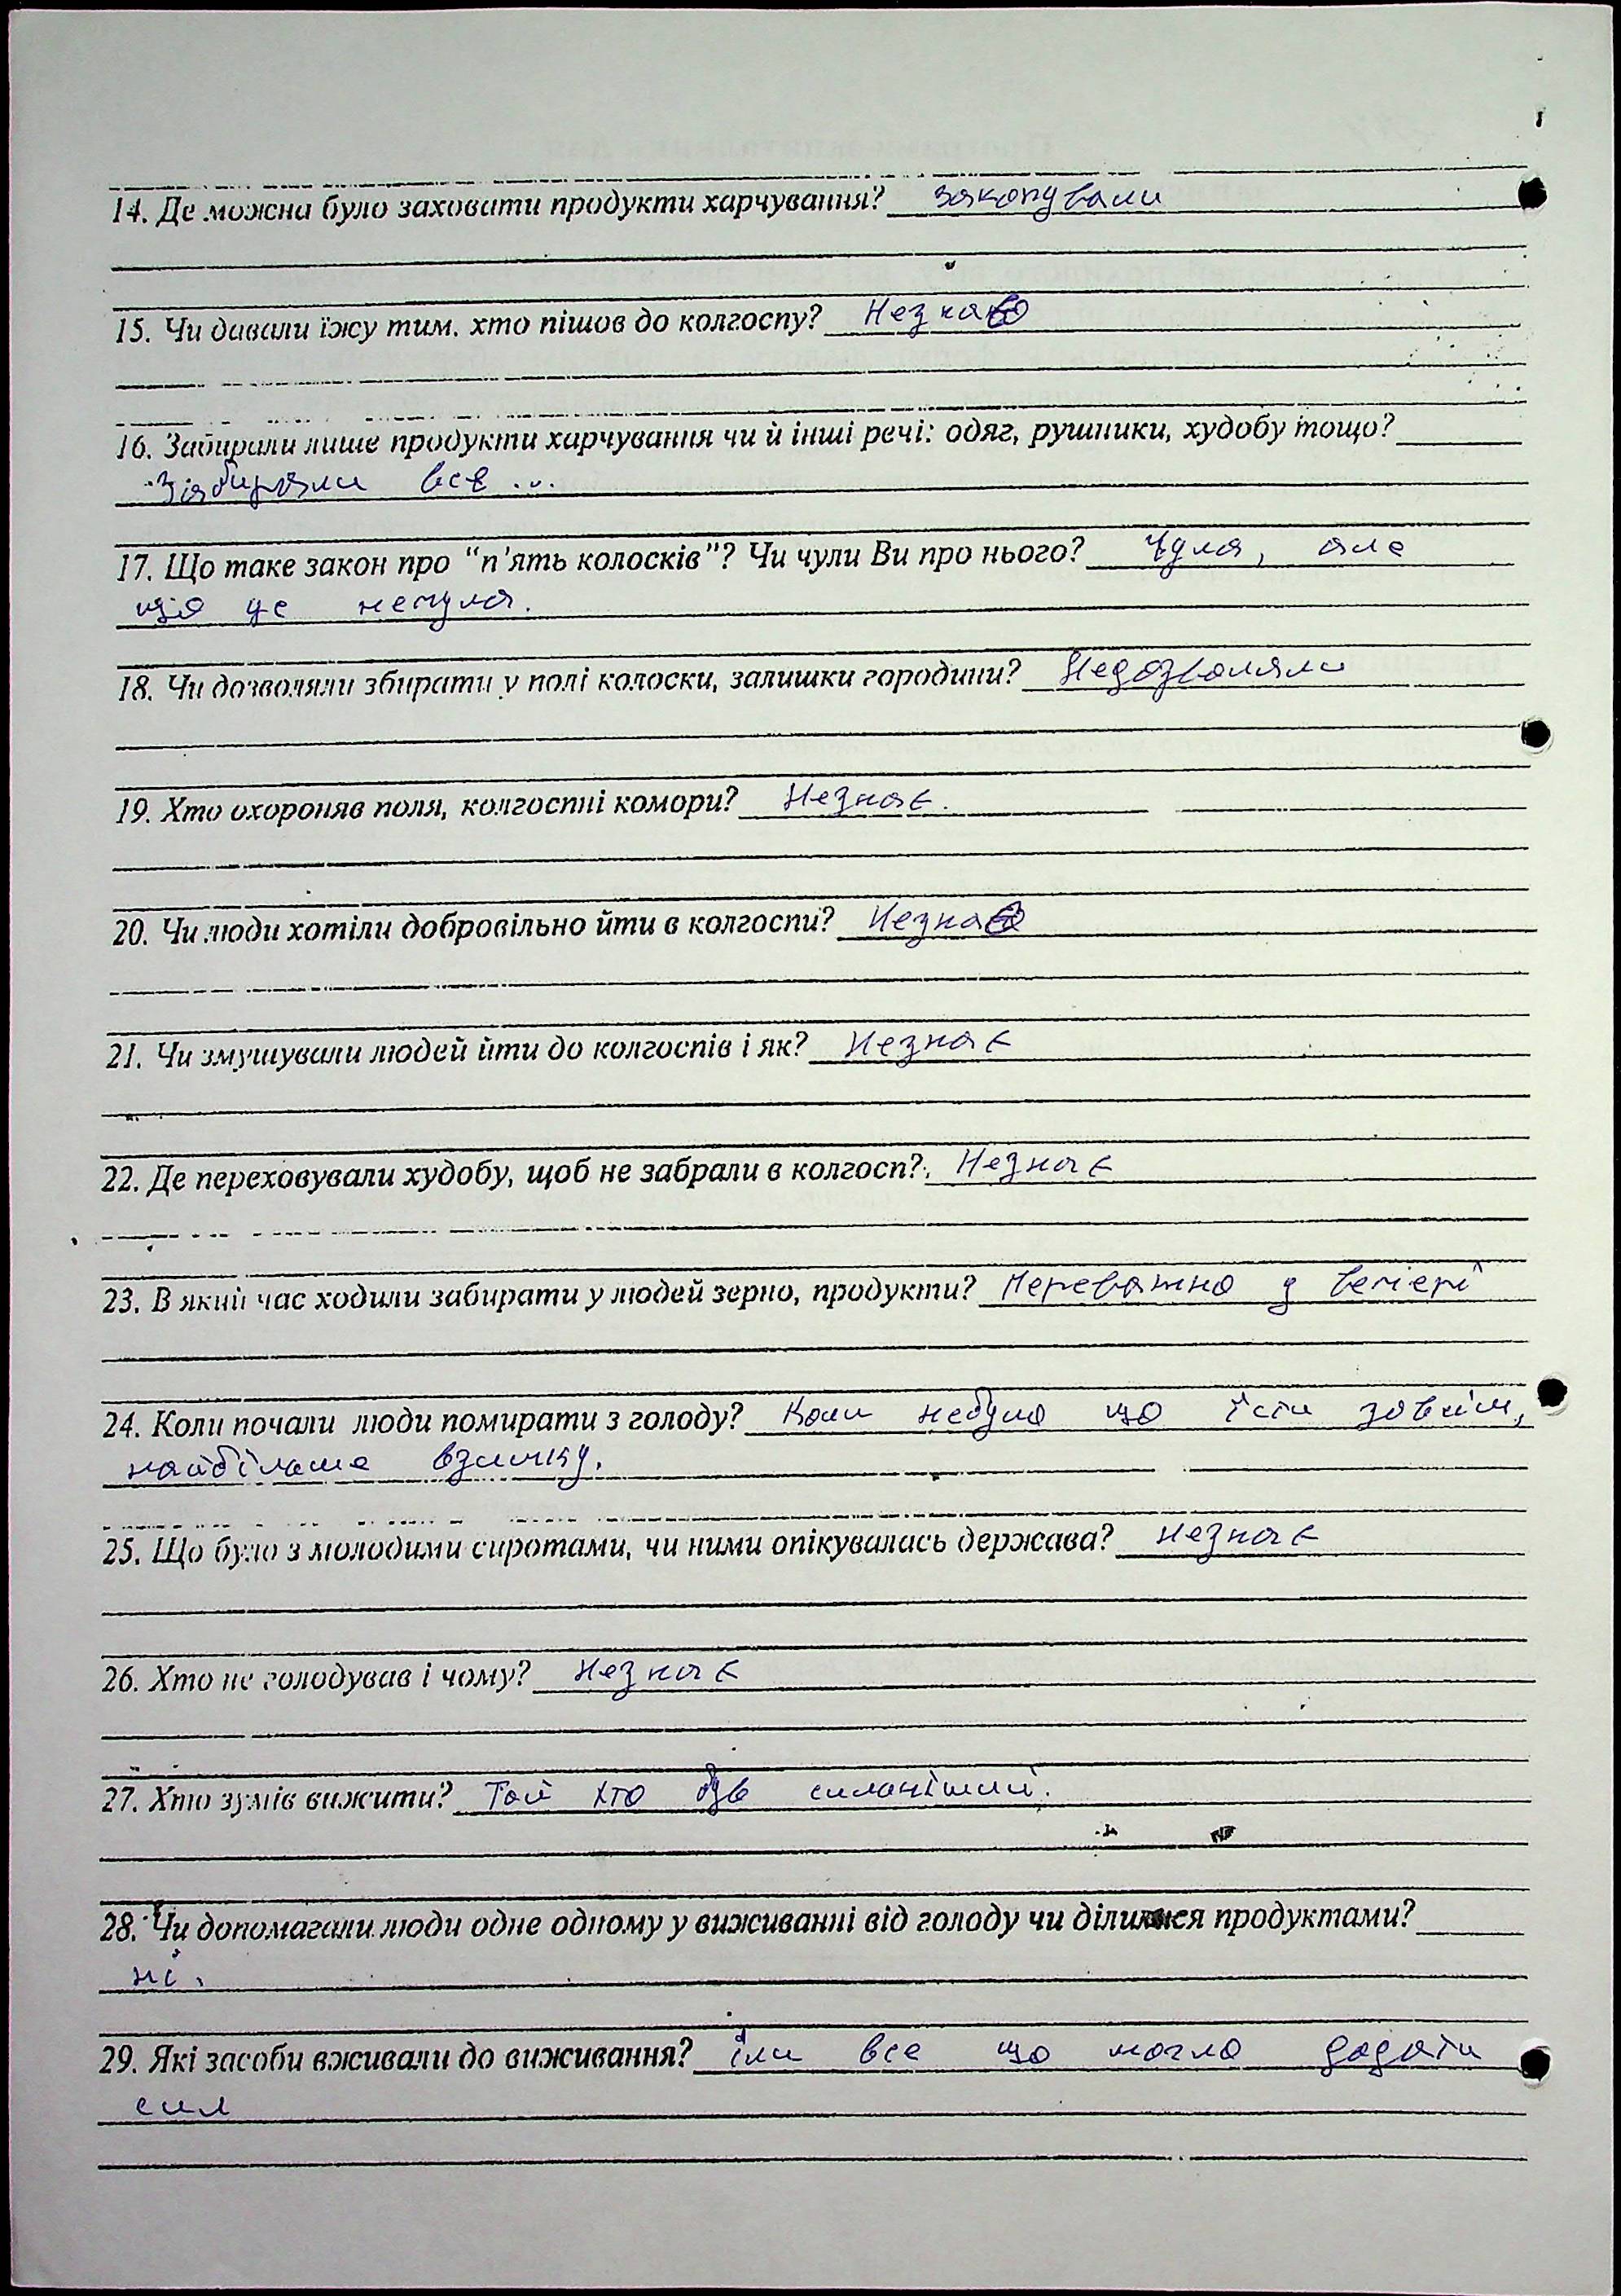 14. Де можна було заховати продукти харчування? закопували
15. Чи давали їжу тим, хто пішов до колгоспу? Незнає
16. Забирали лише продукти харчування чи й інші речі: одяг, рушники, худобу тощо?
Забирали все ...
17. Що таке закон про “п'ять колосків”? Чи чули Ви про нього? Чула, але
що це нечула.
18. Чи дозволяли збирати у полі колоски, залишки городини? Недозволяли
19. Хто охороняв поля, колгоспні комори? Незнає.
20. Чи люди хотіли добровільно йти в колгоспи? Незнає
21. Чи змушували людей йти до колгоспів і як? Незнає
22. Де переховували худобу, щоб не забрали в колгосп? Незнає
23. В який час ходили забирати у людей зерно, продукти? Переважно у вечері
24. Коли почали люди помирати з голоду? Коли небуло що їсти зовсім,
найбільше взимку.
25. Що було з молодими сиротами, чи ними опікувалась держава? незнає
26. Хто не голодував і чому? Незнає
27. Хто зумів вижити? Той хто був сильніший.
28. Чи допомагали люди одне одному у виживанні від голоду чи ділилися продуктами?
ні.
29. Які засоби вживали до виживання? їли все що могло додати
сил